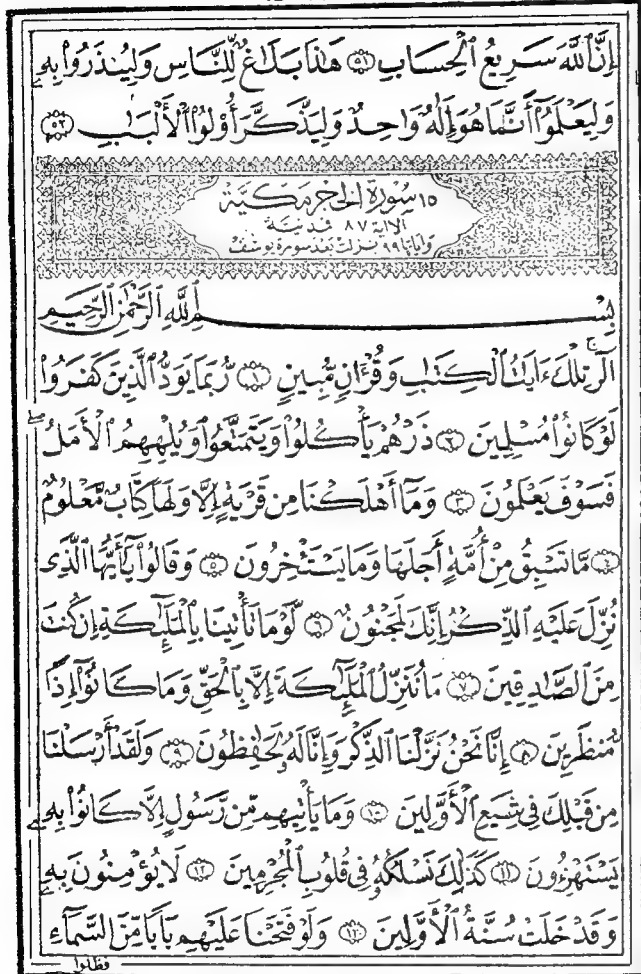 إِنَّ ٱللَّهَ سَرِيعُ ٱلْحِسَابِ ﴿٥١﴾ هَٰذَا بَلَاغٌ لِّلنَّاسِ وَلِيُنذَرُوا۟ بِهِۦ
وَلِيَعْلَمُوٓا۟ أَنَّمَا هُوَ إِلَٰهٌ وَٰحِدٌ وَلِيَذَّكَّرَ أُو۟لُوا۟ ٱلْأَلْبَٰبِ ﴿٥٢﴾
١٥ سُورَةُ الحِجْرِ مَكِيَّة
الا اية ٨٧ فمدنية
وآياتها ٩٩ نزلت بعد سورة يوسف
بِسْمِ ٱللَّهِ ٱلرَّحْمَٰنِ ٱلرَّحِيمِ
الٓر تِلْكَ ءَايَٰتُ ٱلْكِتَٰبِ وَقُرْءَانٍ مُّبِينٍ ﴿١﴾ رُّبَمَا يَوَدُّ ٱلَّذِينَ كَفَرُوا۟
لَوْ كَانُوا۟ مُسْلِمِينَ ﴿٢﴾ ذَرْهُمْ يَأْكُلُوا۟ وَيَتَمَتَّعُوا۟ وَيُلْهِهِمُ ٱلْأَمَلُ
فَسَوْفَ يَعْلَمُونَ ﴿٣﴾ وَمَآ أَهْلَكْنَا مِن قَرْيَةٍ إِلَّا وَلَهَا كِتَابٌ مَّعْلُومٌ
﴿٤﴾ مَّا تَسْبِقُ مِنْ أُمَّةٍ أَجَلَهَا وَمَا يَسْتَـْٔخِرُونَ ﴿٥﴾ وَقَالُوا۟ يَٰٓأَيُّهَا ٱلَّذِى
نُزِّلَ عَلَيْهِ ٱلذِّكْرُ إِنَّكَ لَمَجْنُونٌ ﴿٦﴾ لَّوْ مَا تَأْتِينَا بِٱلْمَلَٰٓئِكَةِ إِن كُنتَ
مِنَ ٱلصَّٰدِقِينَ ﴿٧﴾ مَا نُنَزِّلُ ٱلْمَلَٰٓئِكَةَ إِلَّا بِٱلْحَقِّ وَمَا كَانُوٓا۟ إِذًا
مُّنظَرِينَ ﴿٨﴾ إِنَّا نَحْنُ نَزَّلْنَا ٱلذِّكْرَ وَإِنَّا لَهُۥ لَحَٰفِظُونَ ﴿٩﴾ وَلَقَدْ أَرْسَلْنَا
مِن قَبْلِكَ فِى شِيَعِ ٱلْأَوَّلِينَ ﴿١٠﴾ وَمَا يَأْتِيهِم مِّن رَّسُولٍ إِلَّا كَانُوا۟ بِهِۦ
يَسْتَهْزِءُونَ ﴿١١﴾ كَذَٰلِكَ نَسْلُكُهُۥ فِى قُلُوبِ ٱلْمُجْرِمِينَ ﴿١٢﴾ لَا يُؤْمِنُونَ بِهِۦ
وَقَدْ خَلَتْ سُنَّةُ ٱلْأَوَّلِينَ ﴿١٣﴾ وَلَوْ فَتَحْنَا عَلَيْهِم بَابًا مِّنَ ٱلسَّمَآءِ
فظلوا